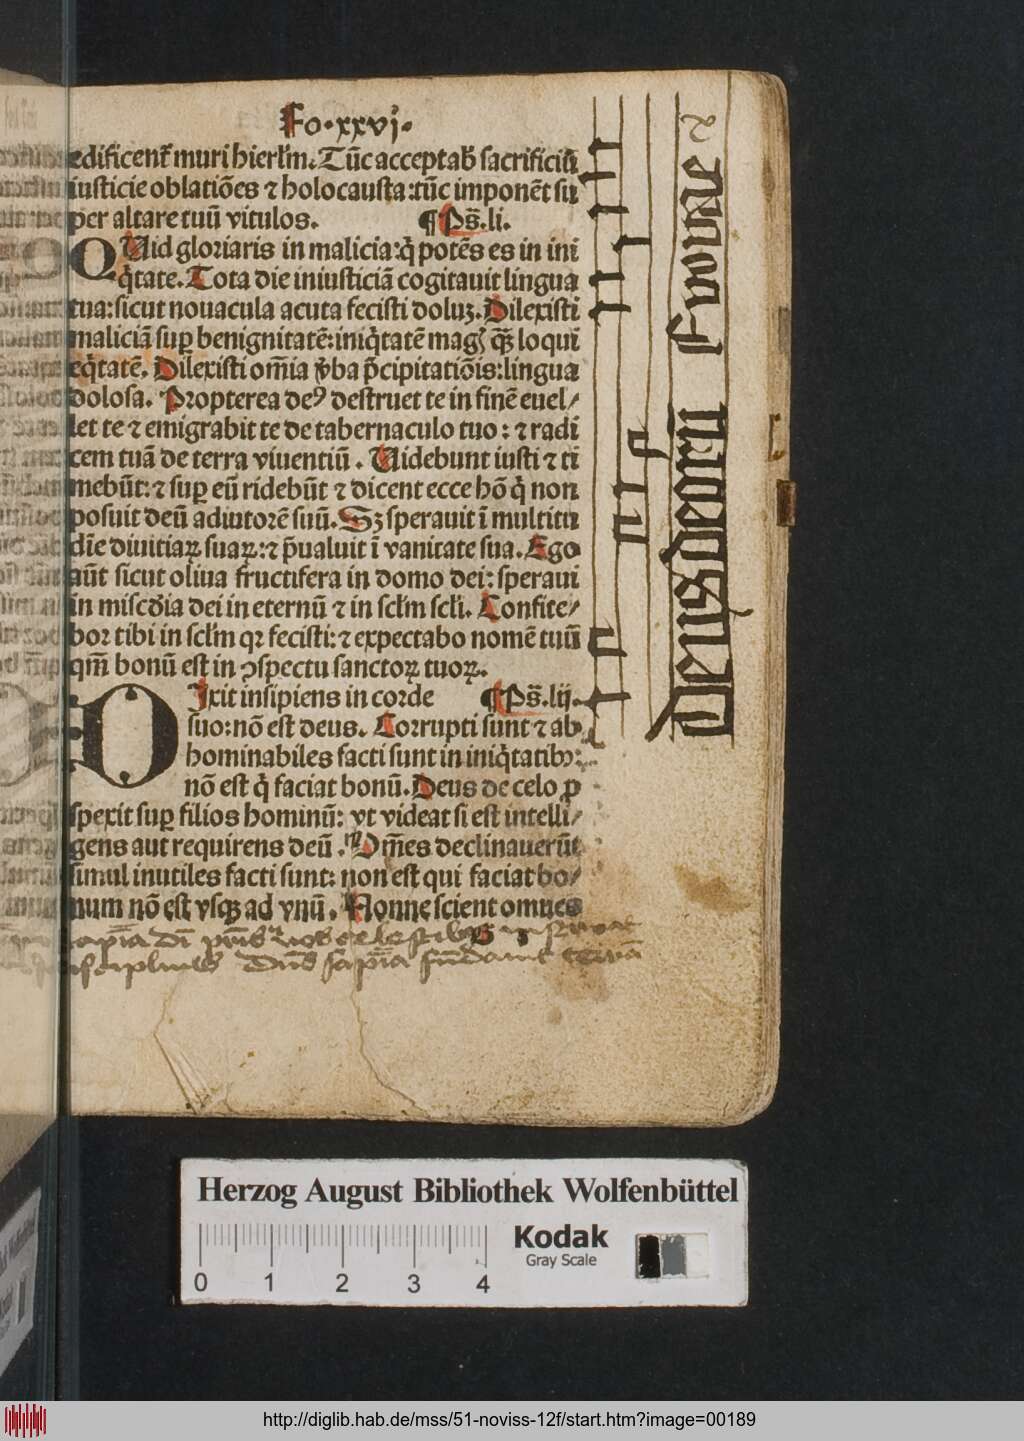 Fo.xxvj.
edificent᷑ muri hierl̄m. Tūc acceptab᷑ sacrificiū
iusticie oblatiōes ⁊ holocausta: tūc imponēt su
per altare tuū vitulos. ¶ Ps̄.li.
QUid gloriaris in malicia: q̇ potēs es in ini
q̇tate. Tota die iniusticiā cogitauit lingua
tua: sicut nouacula acuta fecisti doluʒ. Dilexisti
maliciā suꝑ benignitatē: iniq̇tatē mag᷑ qꝫ̄ loqui
eq̇tatē. Dilexisti om̄ia v̓ba p̄cipitatiōis: lingua
dolosa. Propterea deꝰ destruet te in finē euel/
let te ⁊ emigrabit te de tabernaculo tuo: ⁊ radi
cem tuā de terra viuentiū. Uidebunt iusti ⁊ ti
mebūt: ⁊ suꝑ eū ridebūt ⁊ dicent ecce hō q̇ non
posuit deū adiutorē suū. Sʒ sperauit ī multitu
dīe diuitiaꝝ suaꝝ: ⁊ p̄ualuit ī vanitate sua. Ego
aūt sicut oliua fructifera in domo dei: speraui
in misc̄dia dei in eternū ⁊ in scl̄m scl̄i. Confite/
bor tibi in scl̄m qꝛ fecisti: ⁊ expectabo nomē tuū
qm̄ bonū est in ↄspectu sanctoꝝ tuoꝝ.
DIxit insipiens in corde ¶ Ps̄.lij.
suo: nō est deus. Corrupti sunt ⁊ ab
hominabiles facti sunt in iniq̇tatibꝰ:
nō est q̇ faciat bonū. Deus de celo ꝓ
spexit suꝑ filios hominū: vt videat si est intelli/
gens aut requirens deū. Om̄es declinauerūt
simul inutiles facti sunt: non est qui faciat bo/
num nō est vsqꝫ ad vnū. Nonne scient omnes
Herzog August Bibliothek Wolfenbüttel
Kodak
Gray Scale
0 1 2 3 4
http://diglib.hab.de/mss/51-noviss-12f/start.htm?image=00189